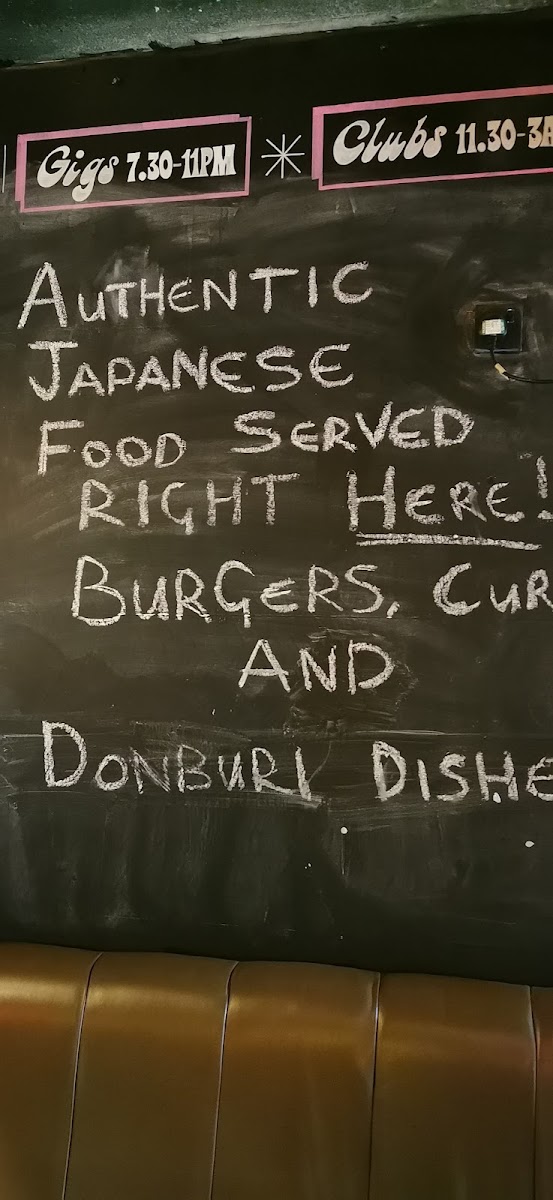 Gigs 7.30-11PM
Clubs 11.30-3A
AUTHENTIC
JAPANESE
FOOD SERVED
RIGHT HERE!
BURGERS, CUR
AND
DONBURI DISHE